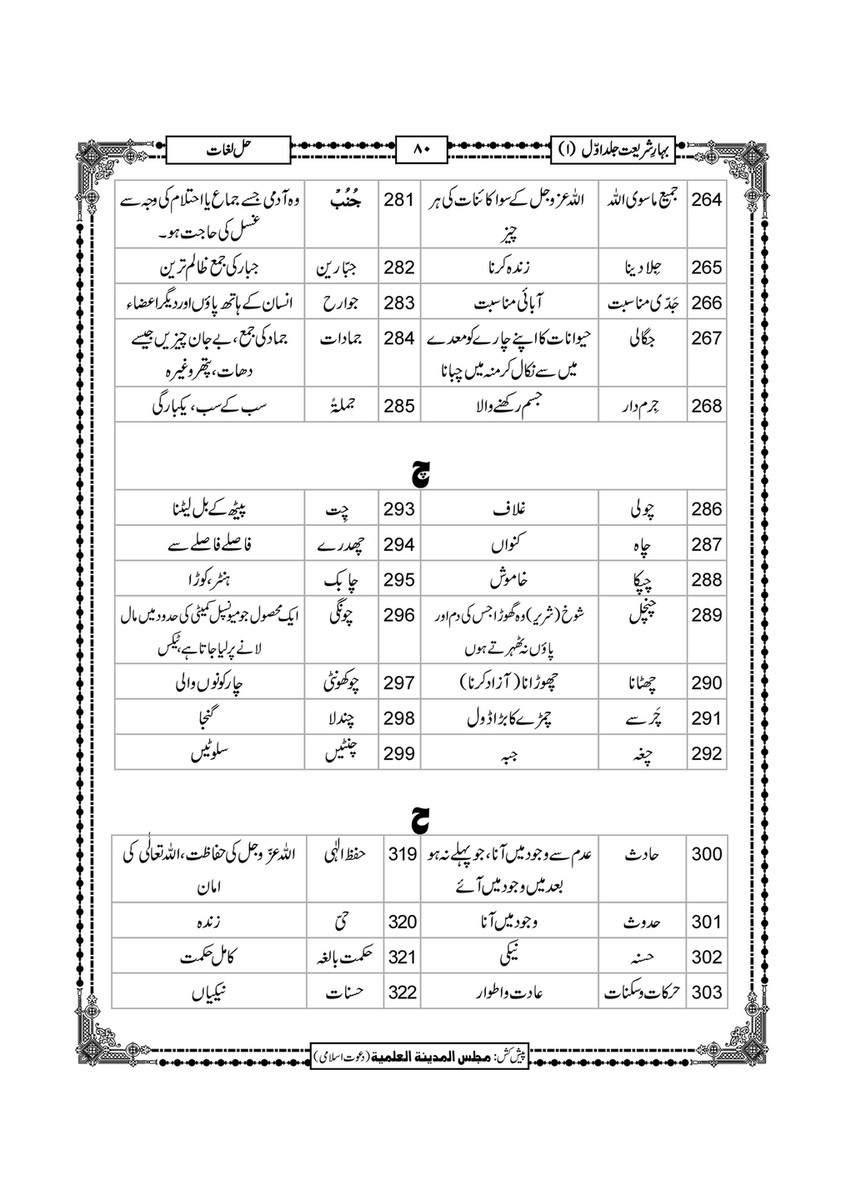 بہارِ شریعت جلد اوّل (۱)
۸۰
حل لغات
264 جمیع ماسوی اللہ اللہ عزوجل کے سوا کائنات کی ہر 281 جُنُبْ وہ آدمی جسے جماع یا احتلام کی وجہ سے
چیز غسل کی حاجت ہو۔
265 جِلا دینا زندہ کرنا 282 جبّارین جبار کی جمع ظالم ترین
266 جَدّی مناسبت آبائی مناسبت 283 جوارح انسان کے ہاتھ پاؤں اور دیگر اعضاء
267 جگالی حیوانات کا اپنے چارے کو معدے 284 جمادات جماد کی جمع، بے جان چیزیں جیسے
میں سے نکال کر منہ میں چبانا دھات، پتھر وغیرہ
268 جِرم دار جسم رکھنے والا 285 جملۃً سب کے سب، یکبارگی
چ
286 چولی غلاف 293 چِت پیٹھ کے بل لیٹنا
287 چاہ کنواں 294 چھدرے فاصلے فاصلے سے
288 چپکا خاموش 295 چابک ہنٹر، کوڑا
289 چنچل شوخ (شریر) وہ گھوڑا جس کی دم اور 296 چونگی ایک محصول جو میونسپل کمیٹی کی حدود میں مال
پاؤں نہ ٹھہرتے ہوں لانے پر لیا جاتا ہے، ٹیکس
290 چھٹانا چھوڑانا (آزاد کرنا) 297 چوکھونٹی چار کونوں والی
291 چَرسے چمڑے کا بڑا ڈول 298 چندلا گنجا
292 چغہ جبہ 299 چنٹیں سلوٹیں
ح
300 حادث عدم سے وجود میں آنا، جو پہلے نہ ہو 319 حفظ الٰہی اللہ عزّوجل کی حفاظت، اللہ تعالٰی کی
بعد میں وجود میں آئے امان
301 حدوث وجود میں آنا 320 حیّ زندہ
302 حسنہ نیکی 321 حکمت بالغہ کامل حکمت
303 حرکات وسکنات عادت و اطوار 322 حسنات نیکیاں
پیش کش: مجلس المدینة العلمیة (دعوت اسلامی)